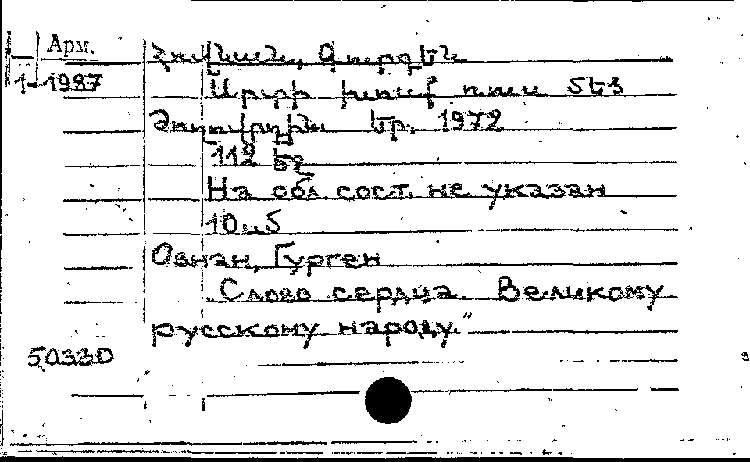 Арм.
1-1987
Գուրգեն
Սրտի խոսք ռուս
Ժողովրդին Եր. 1972
112 էջ
На обл. сост. не указан
10.5
Овнан, Гурген
Слово сердца Великому
русскому народу."
50330